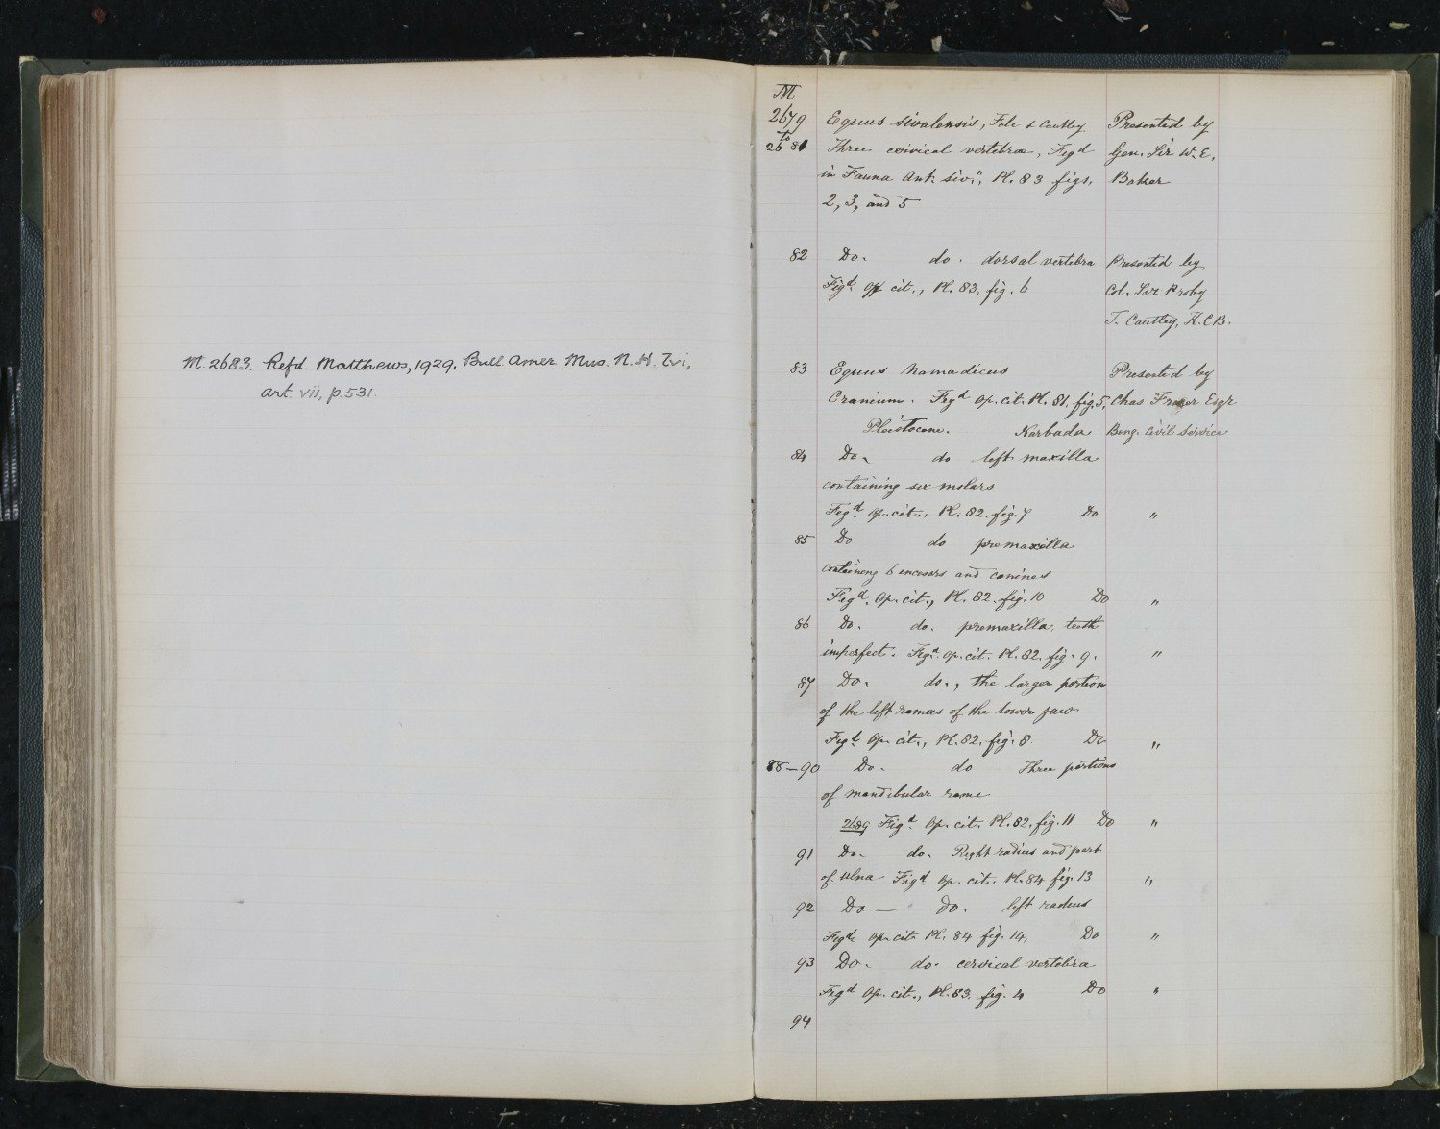 M. 2683. Refd Matthews, 1929. Bull. Amer. Mus. N. H. lvi,
art. vii, p. 531.
M
2679 Equus sivalensis, Falc & Cautley Presented by
to
2681 Three cervical vertebræ, Figd Gen. Sir W. E.
in Fauna Ant: Siv:, Pl. 83 figs. Baker
2, 3, and 5
82 Do. do. dorsal vertebra Presented by
Figd. Op cit., Pl. 83. fig. 6 Col. Sir Proby
T. Cautley, K.C.B.
83 Equus namadicus Presented by
Cranium. Figd Op. cit. Pl. 81. fig. 5, Chas Fraser Esqr
Pleistocene. Narbada Beng. Civil Service
84 Do. do left maxilla
containing six molars
Figd Op. cit., Pl. 82. fig. 7 Do "
85 Do do premaxilla
containing 6 incisors and canines
Figd. Op. cit., Pl. 82. fig. 10 Do "
86 Do. do. premaxilla, teeth
imperfect. Figd. Op. cit. Pl. 82. fig. 9. "
87 Do. do., the larger portion
of the left ramus of the lower jaw
Figd. Op. cit., Pl. 82. fig. 8 Do "
88–90 Do. do Three portions
of mandibular rami
2689 Figd. Op. cit. Pl. 82. fig. 11 Do "
91 Do. do. Right radius and part
of ulna Figd Op. cit. Pl. 84 fig. 13 "
92 Do — do. left radius
Figd. Op. cit. Pl. 84 fig. 14, Do "
93 Do. do. cervical vertebra
Figd Op. cit., Pl. 83. fig. 4 Do "
94